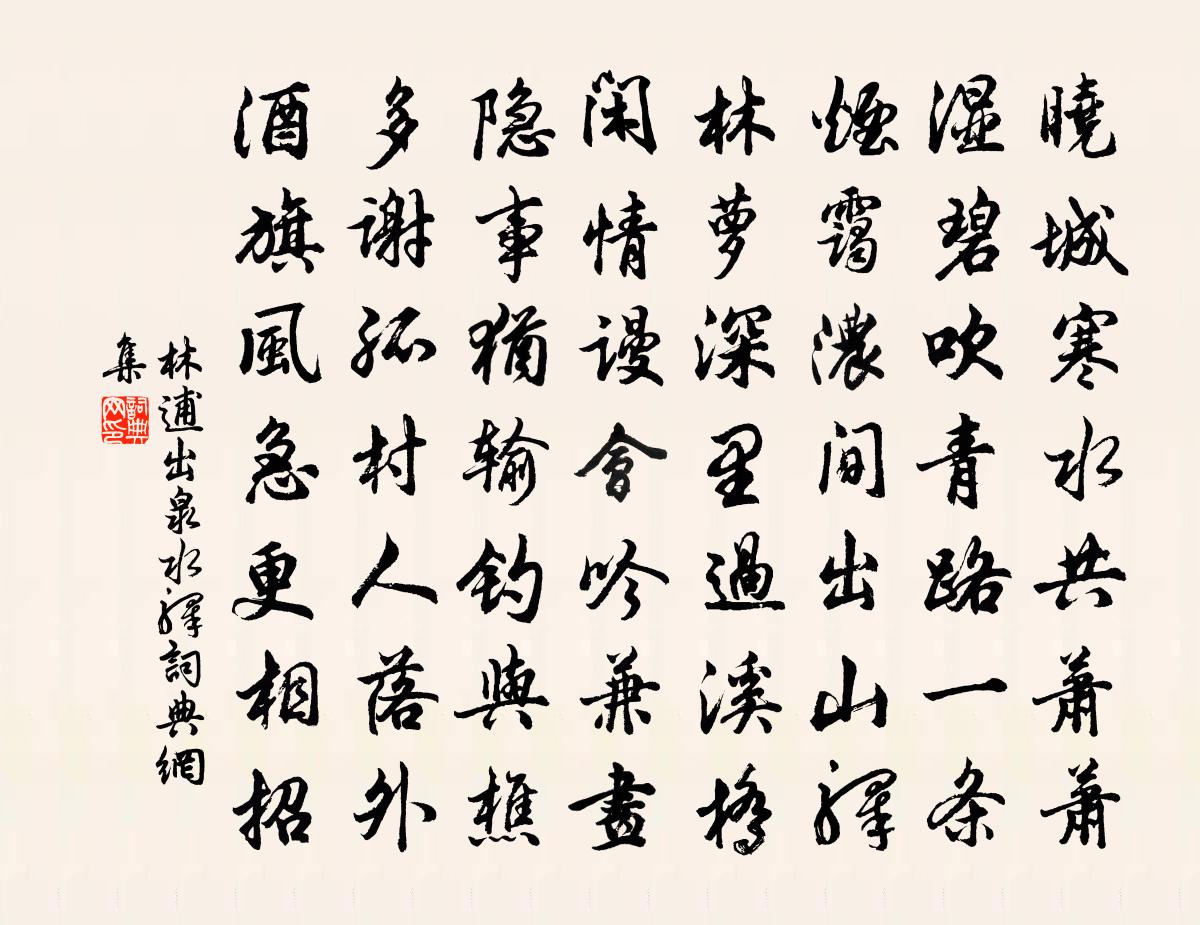 曉城寒水共蕭蕭
濕碧吹青路一条
煙靄濃間出山驛
林萝深里過溪橋
闲情謾會吟兼畫
隐事猶输釣與樵
多謝孤村人落外
酒旗風急更相招
林逋出泉水驛詞典網
集
詞典網印